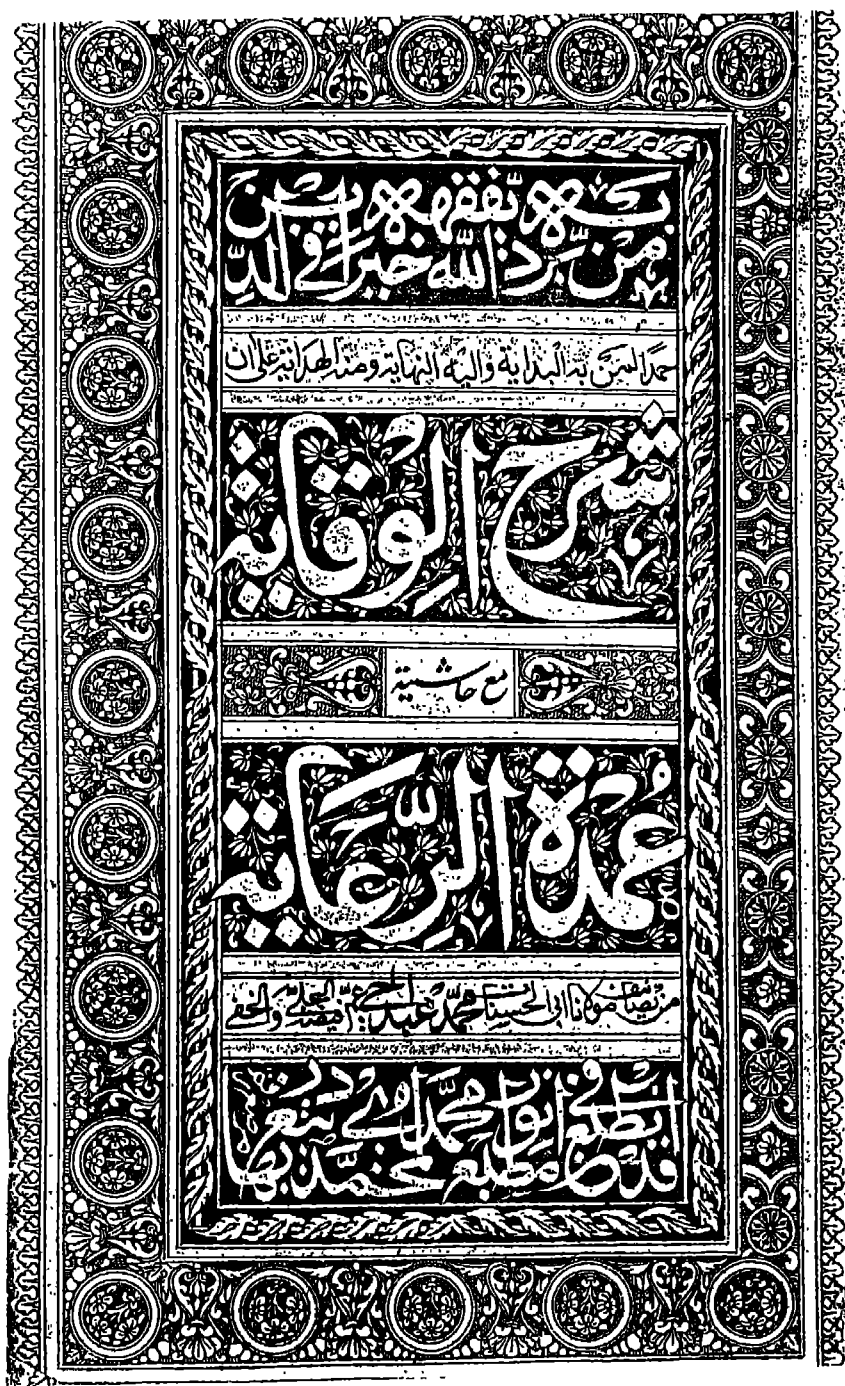 من يرد الله خيرا يفقهه في الدين
حمدا لمن به البداية واليه النهاية ومنه الهداية على ان
شرح الوقاية
مع حاشية
عمدة الرعاية
من تصانيف مولانا ابى الحسنات محمد عبد الحي والخفي
قد انطبع في مطبع انوار محمدي